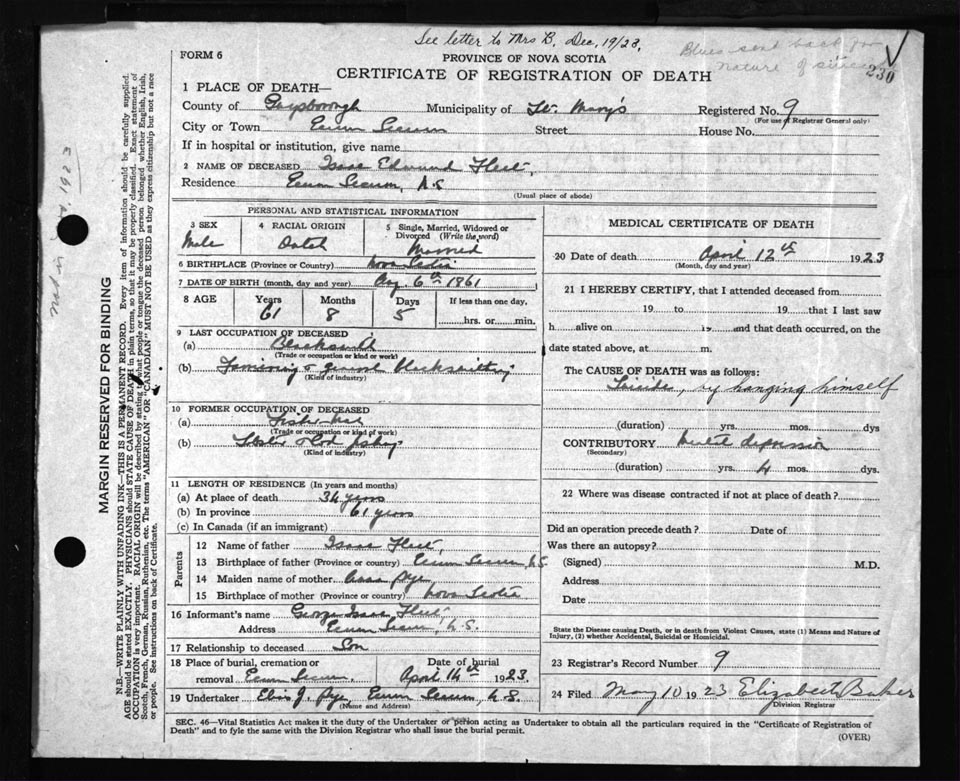 See letter to Mrs B. Dec, 19/23,
Blues sent back for
nature of suicide
230
FORM 6
PROVINCE OF NOVA SCOTIA
CERTIFICATE OF REGISTRATION OF DEATH
1 PLACE OF DEATH—
County of Guysborough Municipality of St. Mary's Registered No. 9
(For use of Registrar General only)
City or Town Ecum Secum Street House No.
If in hospital or institution, give name
2 NAME OF DECEASED Isaac Edmund Fleet,
Residence Ecum Secum, N.S
(Usual place of abode)
PERSONAL AND STATISTICAL INFORMATION
3 SEX
Male
4 RACIAL ORIGIN
Dutch
5 Single, Married, Widowed or Divorced (Write the word)
Married
6 BIRTHPLACE (Province or Country) Nova Scotia
7 DATE OF BIRTH (month, day and year) Aug 6th 1861
8 AGE Years Months Days If less than one day,
61 8 5 hrs. or min.
9 LAST OCCUPATION OF DECEASED
(a) Blacksmith
(Trade or occupation or kind or work)
(b) general blacksmithing
(Kind of industry)
10 FORMER OCCUPATION OF DECEASED
(a) Fisherman
(Trade or occupation or kind of work)
(b) Lobster & Cod fishing
(Kind of industry)
11 LENGTH OF RESIDENCE (In years and months)
(a) At place of death 34 years
(b) In province 61 years
(c) In Canada (if an immigrant)
Parents
12 Name of father Isaac Fleet,
13 Birthplace of father (Province or country) Ecum Secum, N.S.
14 Maiden name of mother Pye
15 Birthplace of mother (Province or country) Nova Scotia
16 Informant's name George Isaac Fleet,
Address Ecum Secum, N.S.
17 Relationship to deceased Son
18 Place of burial, cremation or Date of burial
removal Ecum Secum, April 14th 1923.
19 Undertaker J. Pye Ecum Secum, N.S.
(Name and Address)
MEDICAL CERTIFICATE OF DEATH
20 Date of death April 12th 1923
(Month, day and year)
21 I HEREBY CERTIFY, that I attended deceased from
19 to 19 that I last saw
h alive on 19 and that death occurred, on the
date stated above, at m.
The CAUSE OF DEATH was as follows:
Suicide, by hanging himself
(duration) yrs. mos. dys
CONTRIBUTORY Mental depression
(Secondary)
(duration) yrs. 4 mos. dys.
22 Where was disease contracted if not at place of death?
Did an operation precede death? Date of
Was there an autopsy?
(Signed) M.D.
Address
Date
State the Disease causing Death, or in death from Violent Causes, state (1) Means and Nature of
Injury, (2) whether Accidental, Suicidal or Homicidal.
23 Registrar's Record Number 9
24 Filed May 10 1923 Elizabeth Baker
Division Registrar
SEC. 46—Vital Statistics Act makes it the duty of the Undertaker or person acting as Undertaker to obtain all the particulars required in the "Certificate of Registration of
Death" and to fyle the same with the Division Registrar who shall issue the burial permit.
(OVER)
MARGIN RESERVED FOR BINDING
N.B.—WRITE PLAINLY WITH UNFADING INK—THIS IS A PERMANENT RECORD. Every item of information should be carefully supplied.
AGE should be stated EXACTLY. PHYSICIANS should STATE CAUSE OF DEATH in plain terms, so that it may be properly classified. Exact statement of
OCCUPATION is very important. RACIAL ORIGIN will be described by stating to what people or tongue the deceased person belonged whether English, Irish,
Scotch, French, German, Russian, Ruthenian, etc. The terms "AMERICAN" OR "CANADIAN" MUST NOT BE USED as they express citizenship but not a race
or people. See instructions on back of Certificate.
1923